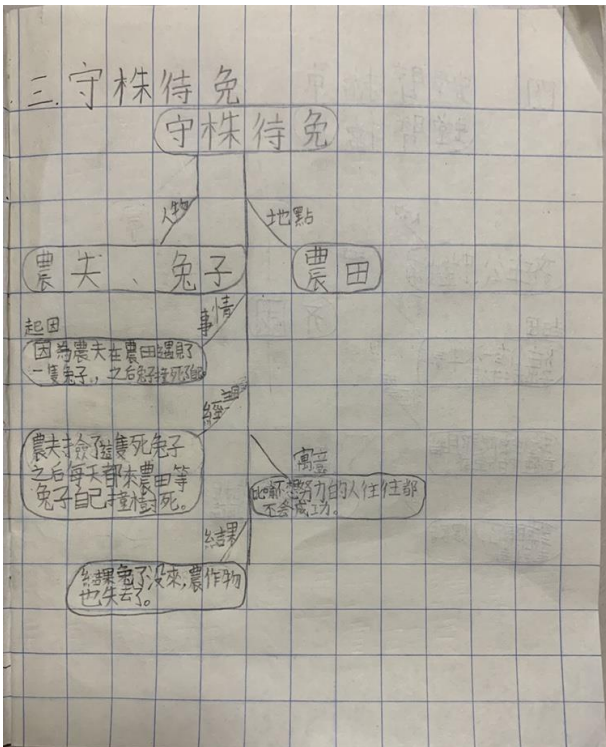 三.守株待兔
守株待兔
人物
地點
農夫、兔子
農田
事情
起因
因為農夫在農田遇見了
一隻兔子,之后兔子撞死了
經過
農夫撿了這隻死兔子
之后每天都來農田等
兔子自己撞樹死。
寓意
比喻不想努力的人往往都
不会成功。
結果
結果兔子沒來,農作物
也失去了。